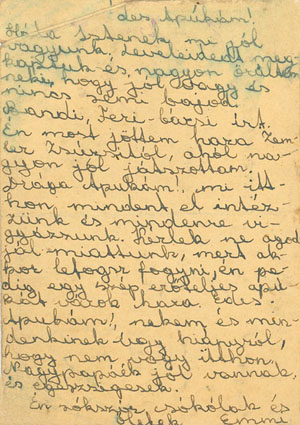 des Apukám!
Hála Istenek mi jól
vagyunk. Leveleident meg-
kaptuk és nagyon örültem
neki, hogy jól vagy és
nincs semi bajod.
Bandi, Feri-bácsi irt.
Én most jöttem haza Zem-
ler Zsuzsitól, ahol na-
gyon jól játszottam.
Drága Apukám!, mi itt-
hon, mindent el intéz-
zünk és mindenre vi-
gyázzunk. Kérlek ne agód
jál miattunk, mert ak-
kor lefogsz fogyni, én pe-
dig egy szép erőteljes apu-
kát várok haza Édes.
Apukám!, nekem és min-
denkinek úgy hiányról,
hogy nem vagy itthon.
Nagypapáék jól vannak
és egészségesek.
Én sokszor csókolak és
ölelek Emmi